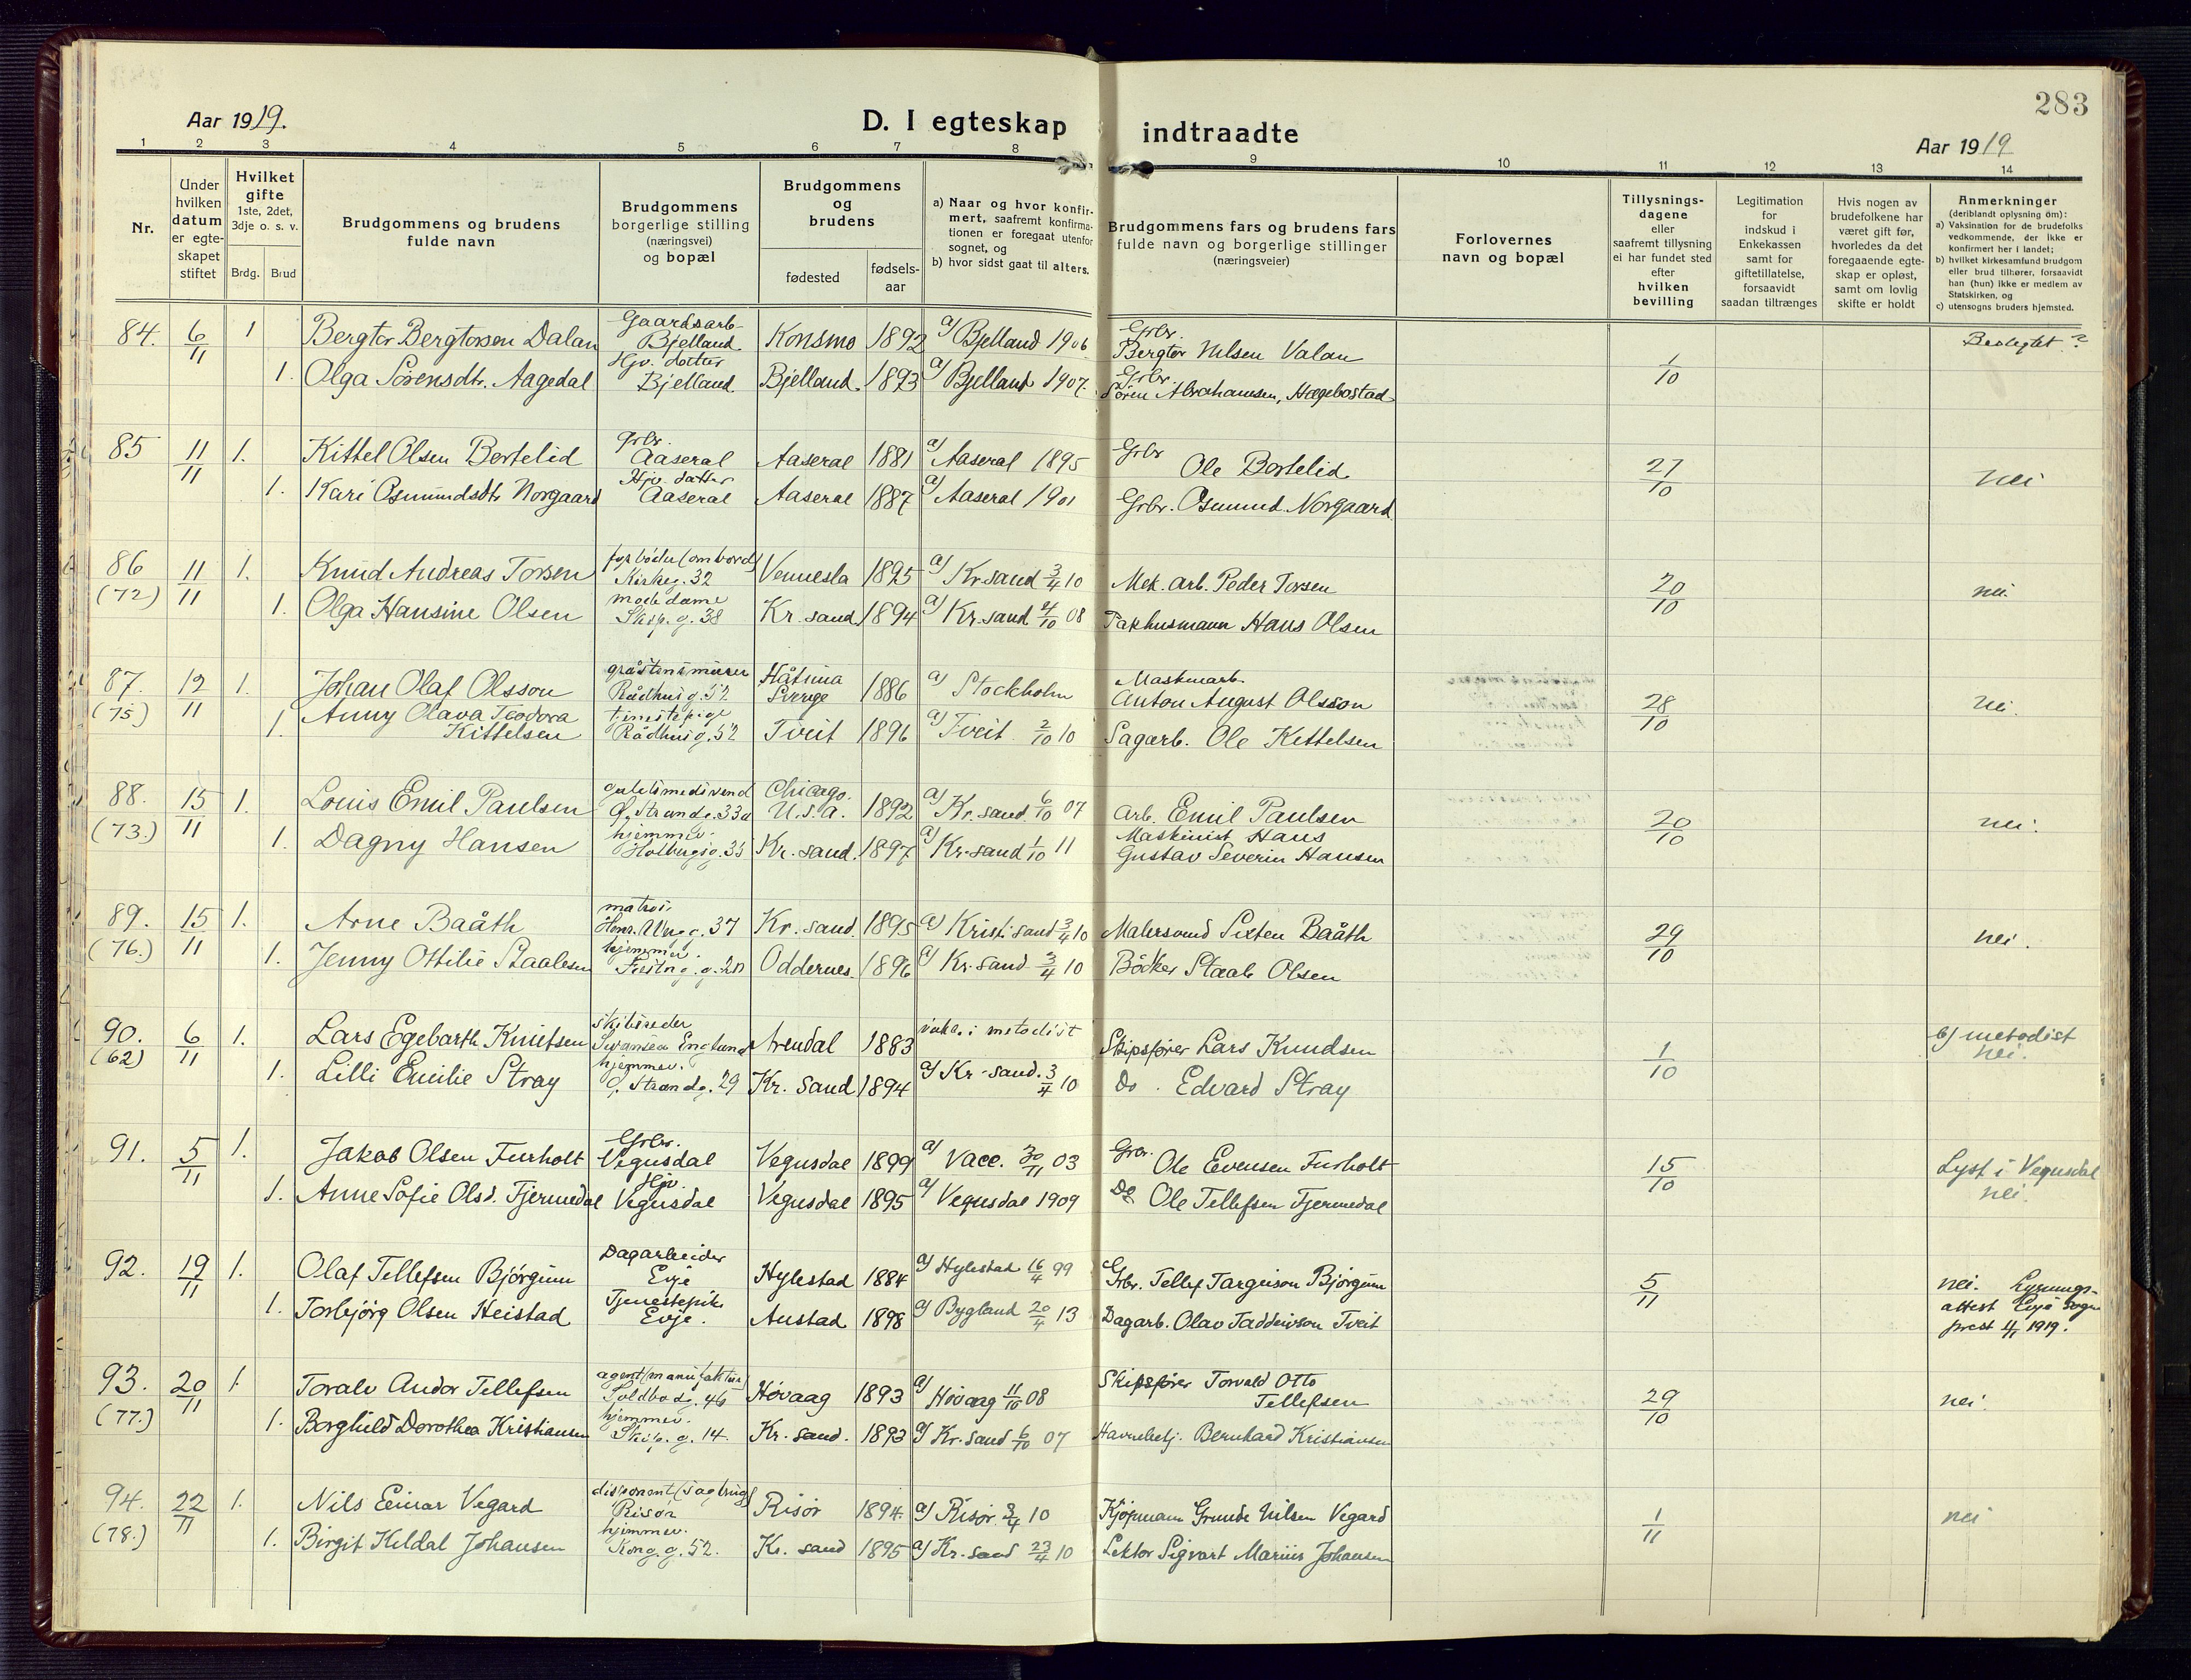 283
Aar 1919.
D. I egteskap indtraadte
Aar 1919
1 2 3 4 5 6 7 8 9 10 11 12 13 14
Nr.
Under hvilken datum er egteskapet stiftet
Hvilket gifte 1ste, 2det, 3dje o. s. v.
Brdg. Brud
Brudgommens og brudens fulde navn
Brudgommens borgerlige stilling (næringsvei) og bopæl
Brudgommens og brudens
fødested
fødsels-aar
a) Naar og hvor konfir-
mert, saafremt konfirma-
tionen er foregaat utenfor
sognet, og
b) hvor sidst gaat til alters.
Brudgommens fars og brudens fars
fulde navn og borgerlige stillinger
(næringsveier)
Forlovernes
navn og bopæl
Tillysnings-
dagene
eller
saafremt tillysning
ei har fundet sted
efter
hvilken
bevilling
Legitimation
for
indskud i
Enkekassen
samt for
giftetillatelse,
forsaavidt
saadan tiltrænges
Hvis nogen av
brudefolkene har
været gift før,
hvorledes da det
foregaaende egte-
skap er opløst,
samt om lovlig
skifte er holdt
Anmerkninger
(deriblandt oplysning om):
a) Vaksination for de brudefolks
vedkommende, der ikke er
konfirmert her i landet;
b) hvilket kirkesamfund brudgom
eller brud tilhører, forsaavidt
han (hun) ikke er medlem av
Statskirken, og
c) utensogns bruders hjemsted.
84. 6/11 1 Bergtor Bergtorsen Dalan Gaardsarb. Bjelland Konsmo 1892 a) Bjelland 1906 Grbr. Bergtor Nilsen Valan 1/10 Beslegtet?
1. Olga Sørensdtr. Aagedal Gjv. datter Bjelland Bjelland 1893 a) Bjelland 1907. Grbr. Søren Abrahamsen, Hægebostad
85 11/11 1. Kittel Olsen Bortelid Grbr. Aaseral Aaseral 1881 a) Aaseral 1895 Grbr Ole Bortelid 27/10 nei
1. Kari Osmundsdtr Norgaard Hjv. datter Aaseral Aaseral 1887 a) Aaseral 1901 Grbr. Osmund Norgaard
86 (72) 11/11 1. Knud Andreas Torsen fyrbøder (ombord) Kirkeg. 32 Vennesla 1895 a) Kr.sand 3/4 10 Mek. arb. Peder Torsen 20/10 nei.
1. Olga Hansine Olsen modedame Skip. g. 38 Kr. sand 1894 a) Kr. sand 4/10 08 Pakhusmann Hans Olsen
87. (75) 12/11 1. Johan Olaf Olsson gråstensmurer Rådhusg. 52 Sverge 1886 a) Stockholm Maskinarb. Anton August Olsson 28/10 nei.
1. Anny Olava Teodora Kittelsen Rådhusg. 52 Tveit 1896 a) Tveit 2/10 10 Sagarb. Ole Kittelsen
88. (73.) 15/11 1. Louis Emil Paulsen gullsmedsvend Ø. Strandg. 33a Chicago. U.S.A. 1892 a) Kr. sand. 6/10 07 Arb. Emil Paulsen 20/10 nei.
1. Dagny Hansen hjemmev. Holbergsg. 35 Kr. sand. 1897 a) Kr. sand 1/10 11 Maskinist Hans Gustav Severin Hansen
89. (76.) 15/11 1. Arne Baåth matros. Henr. Werg. 37 Kr. sand. 1895 a) Kristi.sand 3/4 10 Malersvend Sixten Baåth 29/10 nei.
1. Jenny Ottilie Staalesen hjemmev. Festn. g. 20 Oddernes 1896 a) Kr. sand 3/4 10 Bødker Staale Olsen
90. (62) 6/11 1. Lars Egebarth Knudsen skibsreder Swansea England Arendal 1883 Skipsfører Lars Knudsen 1/10 b) metodist nei.
1. Lilli Emilie Stray hjemmev. Ø. Strandg. 29 Kr. Sand 1894 a) Kr. sand. 3/4 10 Do. Edvard Stray
91. 5/11 1. Jakob Olsen Furholt Grbr. Vegusdal Vegusdal 1899 a) Vacc. 30/11 03 Grbr. Ole Evensen Furholt 15/10 Lyst i Vegusdal nei.
1. Anne Sofie Olsd. Fjermedal Hjv. Vegusdal Vegusdal 1895 a) Vegusdal 1909 Do Ole Tellefsen Fjermedal
92. 19/11 1. Olaf Tellefsen Bjørgum Dagarbeider Evje Hylestad 1884 a) Hylestad 16/4 99 Grbr. Tellef Targeison Bjørgum 5/11 nei. Lysnings-
attest Evje sogne
prest 4/11 1919.
1. Torbjørg Olsen Heistad Tjenestepike Evje. Austad 1898 a) Bygland 20/4 13 Dagarb. Olav Taddeivson Tveit
93. (77.) 20/11 1. Toralv Andor Tellefsen agent (manufaktur) Toldbodg. 46 Høvaag 1893 a) Høvaag 11/10 08 Skipsfører Torvald Otto Tellefsen 29/10 nei.
1. Borghild Dorothea Kristiansen hjemmev. Skip. g. 14. Kr. sand. 1893 a) Kr. sand 6/10 07 Havnebetj. Bernhard Kristiansen
94. (78.) 22/11 1. Nils Einar Vegard disponent (sagbrug) Risør Risør 1894. a) Risør 3/4 10 Kjøpmann Grunde Nilsen Vegard 1/11 nei
1. Birgit Kildal Johansen hjemmev. Kong. g. 52. Kr. sand 1895 a) Kr. sand 23/4 10 Lektor Sigvart Marius Johansen